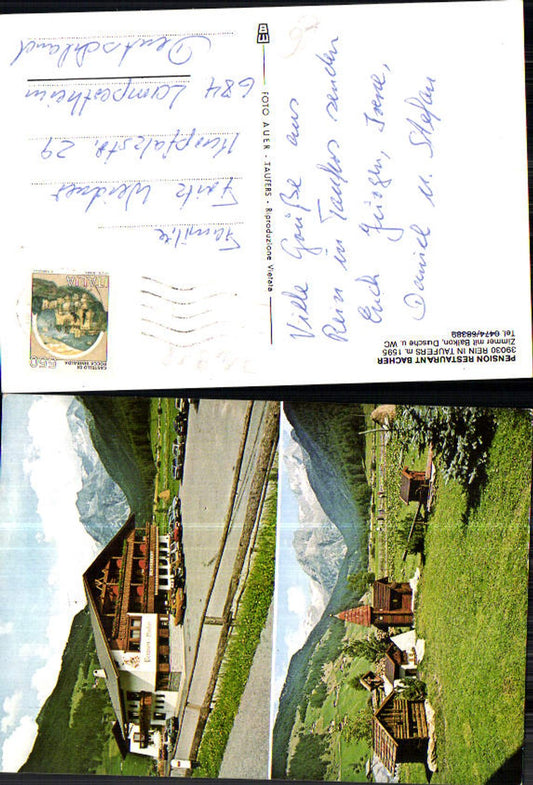 PENSION RESTAURANT BACHER
39030 REIN IN TAUFERS m. 1595
Zimmer mit Balkon, Dusche u. WC
Tel. 0474/68389
Viele Grüße aus
Rein in Taufers senden
Euch Jürgen, Irene,
Daniel u. Stefan
FOTO AUER - TAUFERS - Riproduzione Vietata
ITALIA
550
CASTELLO DI
ROCCA SINIBALDA
Familie
Fritz Weidner
29
684 Lampertheim
Deutschland